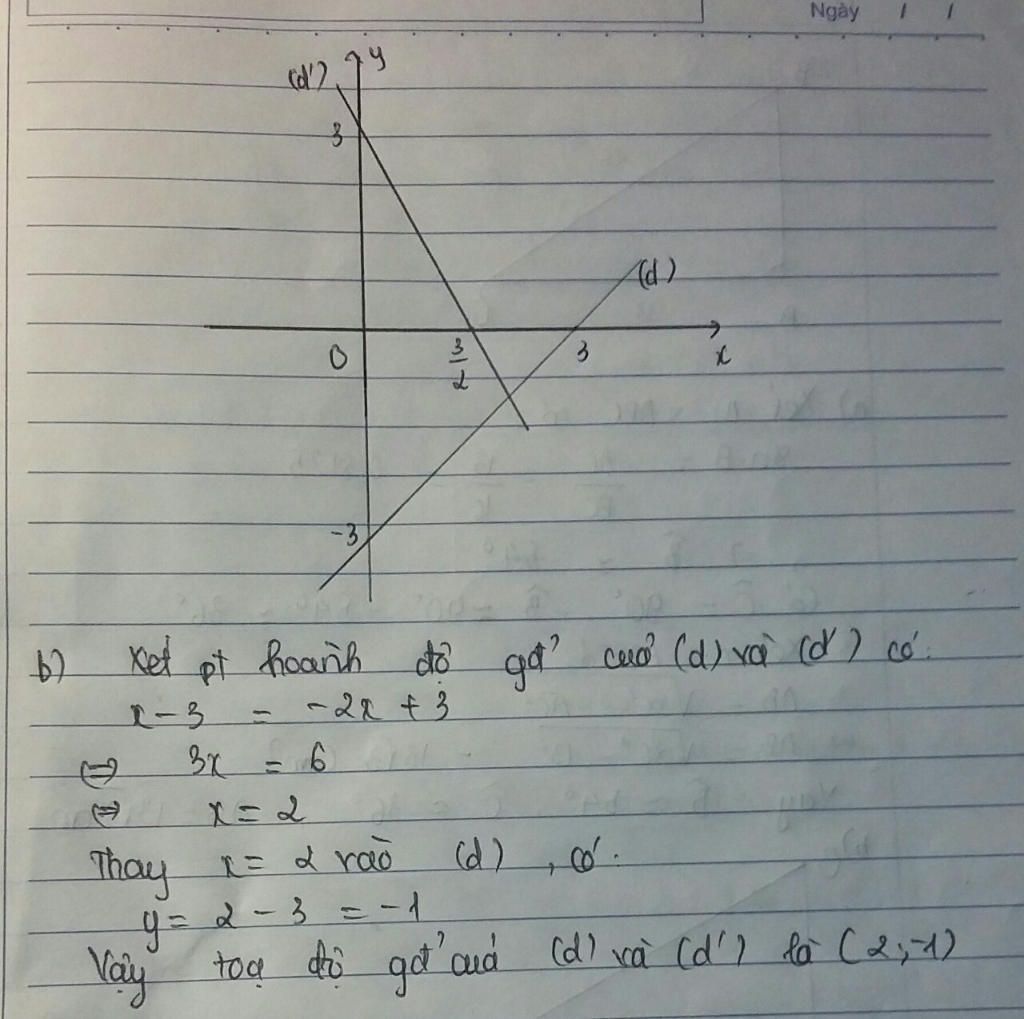 Ngày / /
(d') y
3
(d)
O 3/2 3 x
-3
b) Xét pt hoành độ gđ' của (d) và (d') có:
x - 3 = -2x + 3
⇔ 3x = 6
⇔ x = 2
Thay x = 2 vào (d), có:
y = 2 - 3 = -1
Vậy toạ độ gđ' của (d) và (d') là (2;-1)